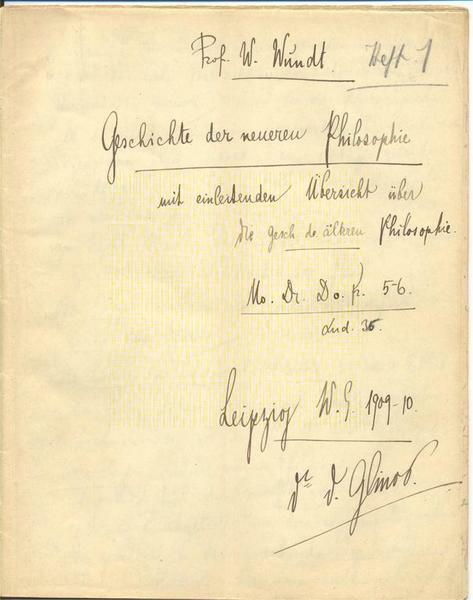 Prof. W. Wundt. Heft 1
Geschichte der neueren Philosophie
mit einleitenden Übersicht über
die Gesch de älteren Philosophie.
Mo. Di. Do. fr. 5-6.
Aud. 36.
Leipzig W. S. 1909-10.
Dr D. Glinos.